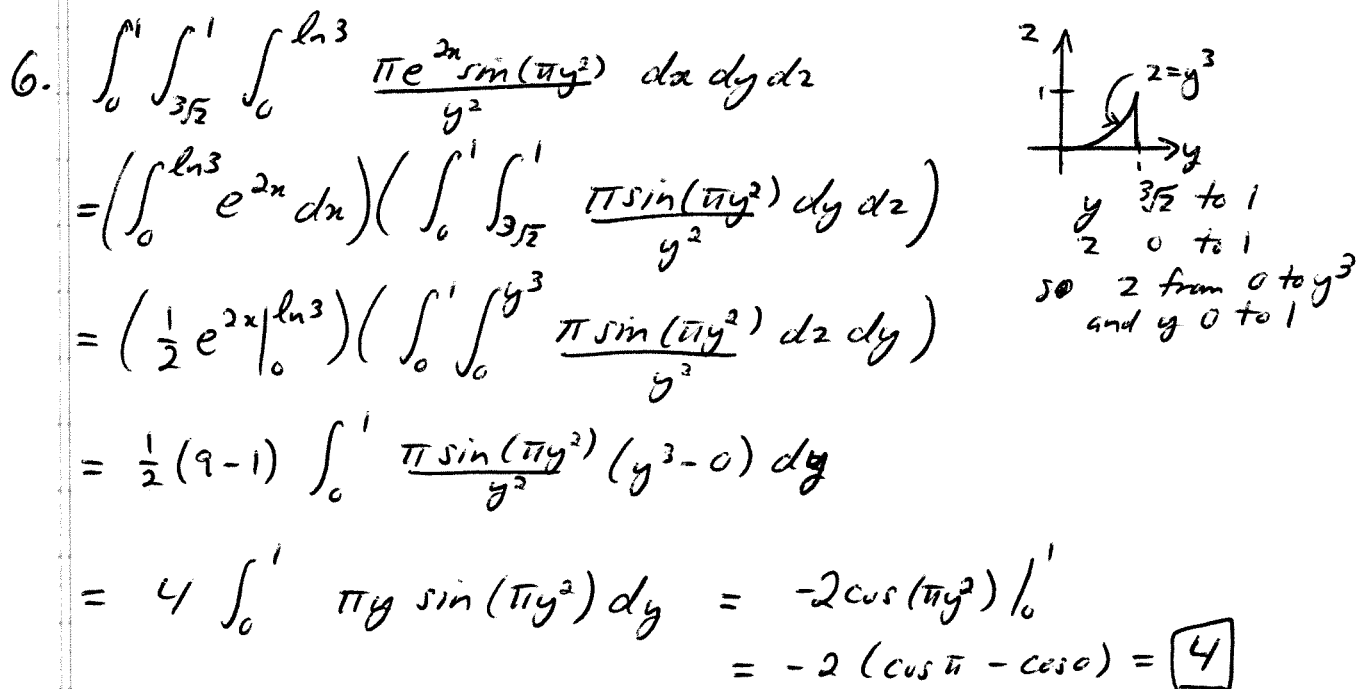 6. ∫₀¹ ∫_{∛z}^1 ∫₀^{ln 3} πe^{2x} sin(πy²)/y² dx dy dz
= (∫₀^{ln 3} e^{2x} dx)(∫₀¹ ∫_{∛z}^1 π sin(πy²)/y² dy dz)
= (½ e^{2x}|₀^{ln 3})(∫₀¹ ∫₀^{y³} π sin(πy²)/y² dz dy)
= ½ (9-1) ∫₀¹ π sin(πy²)/y² (y³-0) dy
= 4 ∫₀¹ πy sin(πy²) dy = -2 cos(πy²)|₀¹
= -2 (cos π - cos 0) = 4
z
1
z=y³
y
1
y ∛z to 1
z 0 to 1
so z from 0 to y³
and y 0 to 1